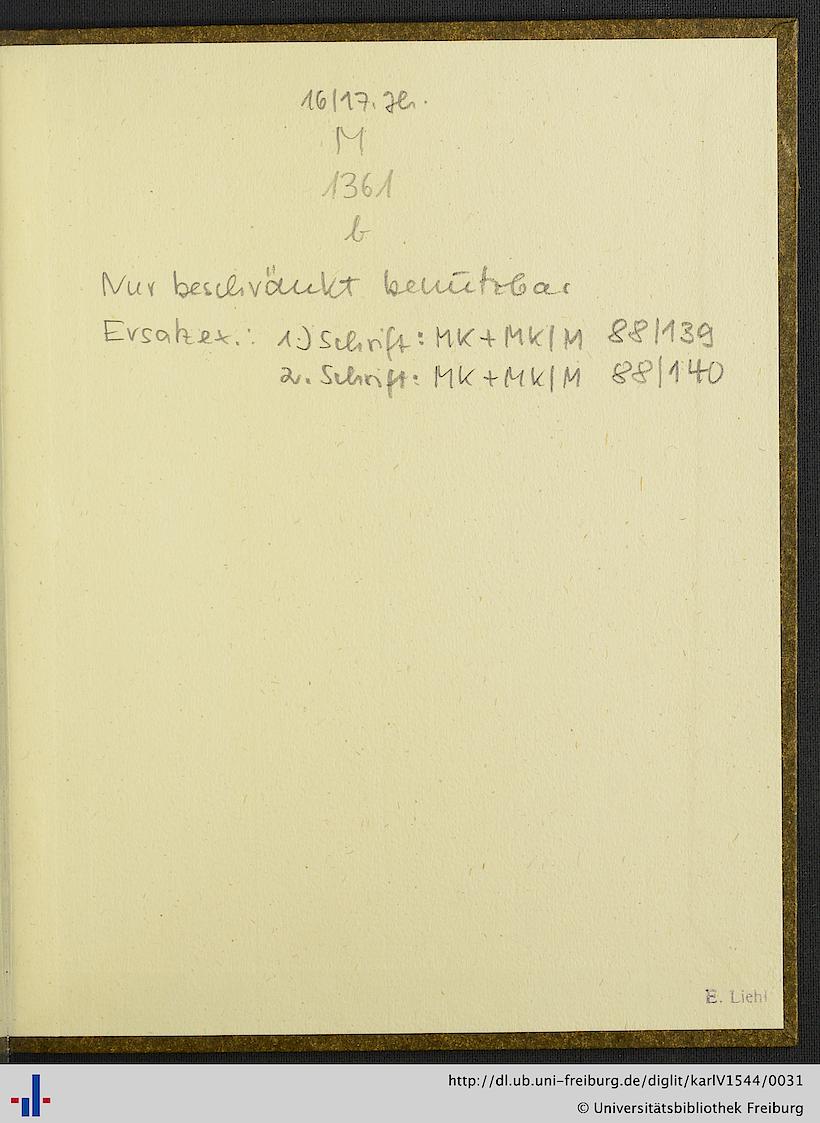 16/17. Jh.
M
1361
b
Nur beschränkt benutzbar
Ersatzex.: 1.) Schrift: MK + MK/M 88/139
2. Schrift: MK + MK/M 88/140
E. Liehl
http://dl.ub.uni-freiburg.de/diglit/karlV1544/0031
© Universitätsbibliothek Freiburg